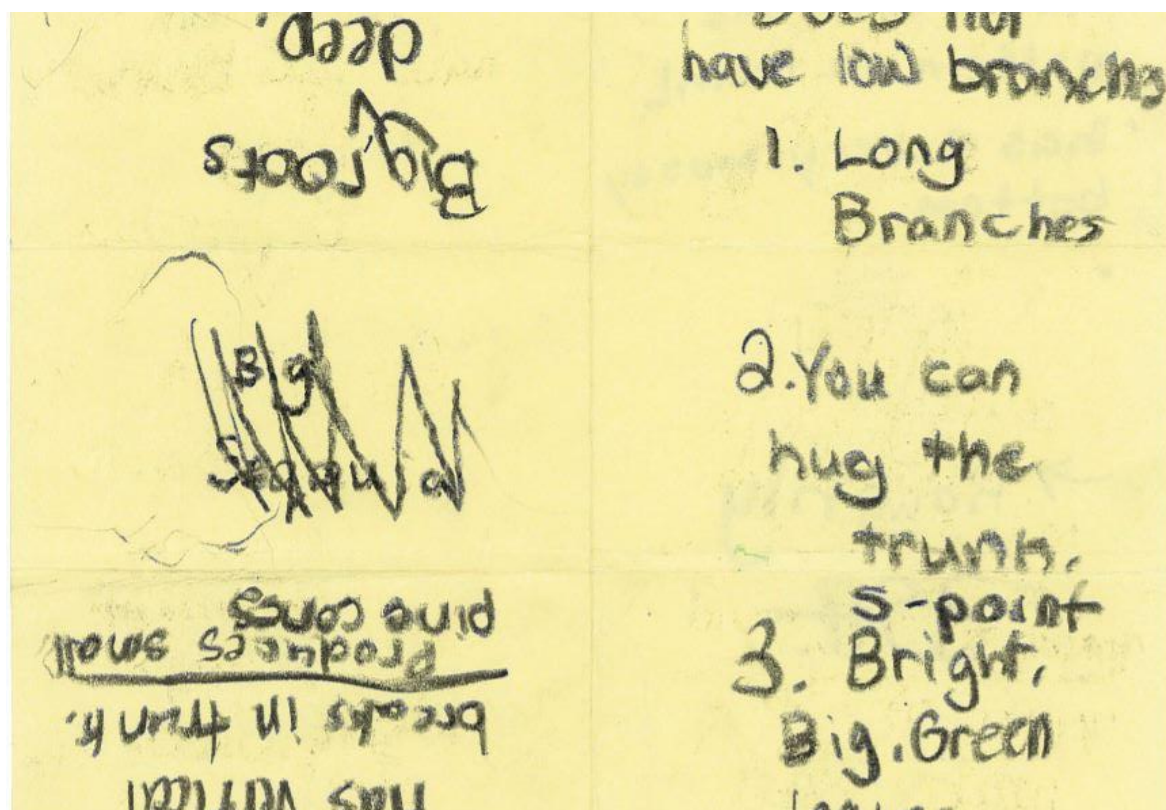 Has vertical
breaks in trunk.
Produces small
pine cones
Big
Big roots
deep.
Does not
have low branches
1. Long
Branches
2. You can
hug the
trunk.
5-point
3. Bright,
Big, Green